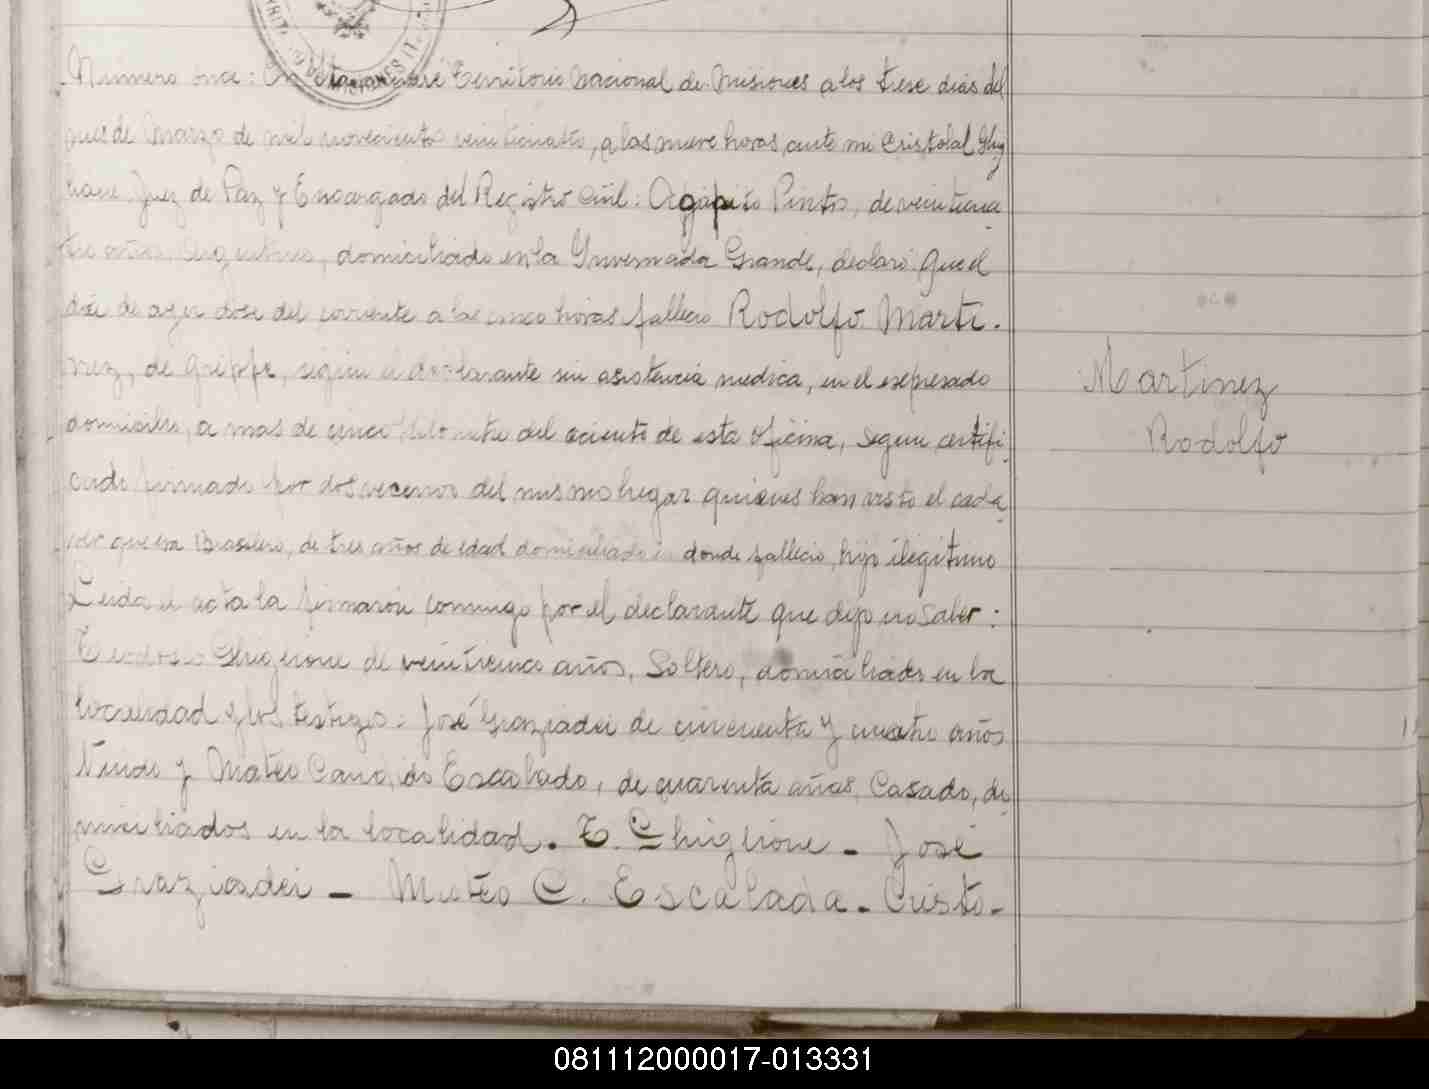 Numero once: En Territorio Nacional de Misiones a los trese dias del
mes de Marzo de mil novecientos veinticuatro, a las nueve horas, ante mi Cristobal Ghig
lione, Juez de Paz y Encargado del Registro Civil: Agapito Pinto, de veinticua
tro años, Argentino, domiciliado en la Invernada Grande, declaró: Que el
dia de ayer dose del corriente a las cinco horas fallecio Rodolfo Marti-
nez, de grippe, segun el declarante sin asistencia medica, en el expresado
domicilio, a mas de cinco kilometro del aciento de esta oficina, segun certifi-
cado firmado por dos vecinos del mismo lugar quienes han visto el cada-
ver que era Brasilero, de tres años de edad domiciliado en donde fallecio, hijo ilegitimo
Leida el acta la firmaron conmigo por el declarante que dijo no saber:
Teodosio Ghiglione de veinticinco años, Soltero, domiciliado en la
localidad y los testigos: José Graziadei de cincuenta y cuatro años
Viudo y Mateo Candido Escalado, de quarenta años, Casado, do-
miciliados en la localidad. T. Ghiglione - José
Graziadei - Mateo C. Escalada - Cristo-
Martinez
Rodolfo
MISIONES
081112000017-013331